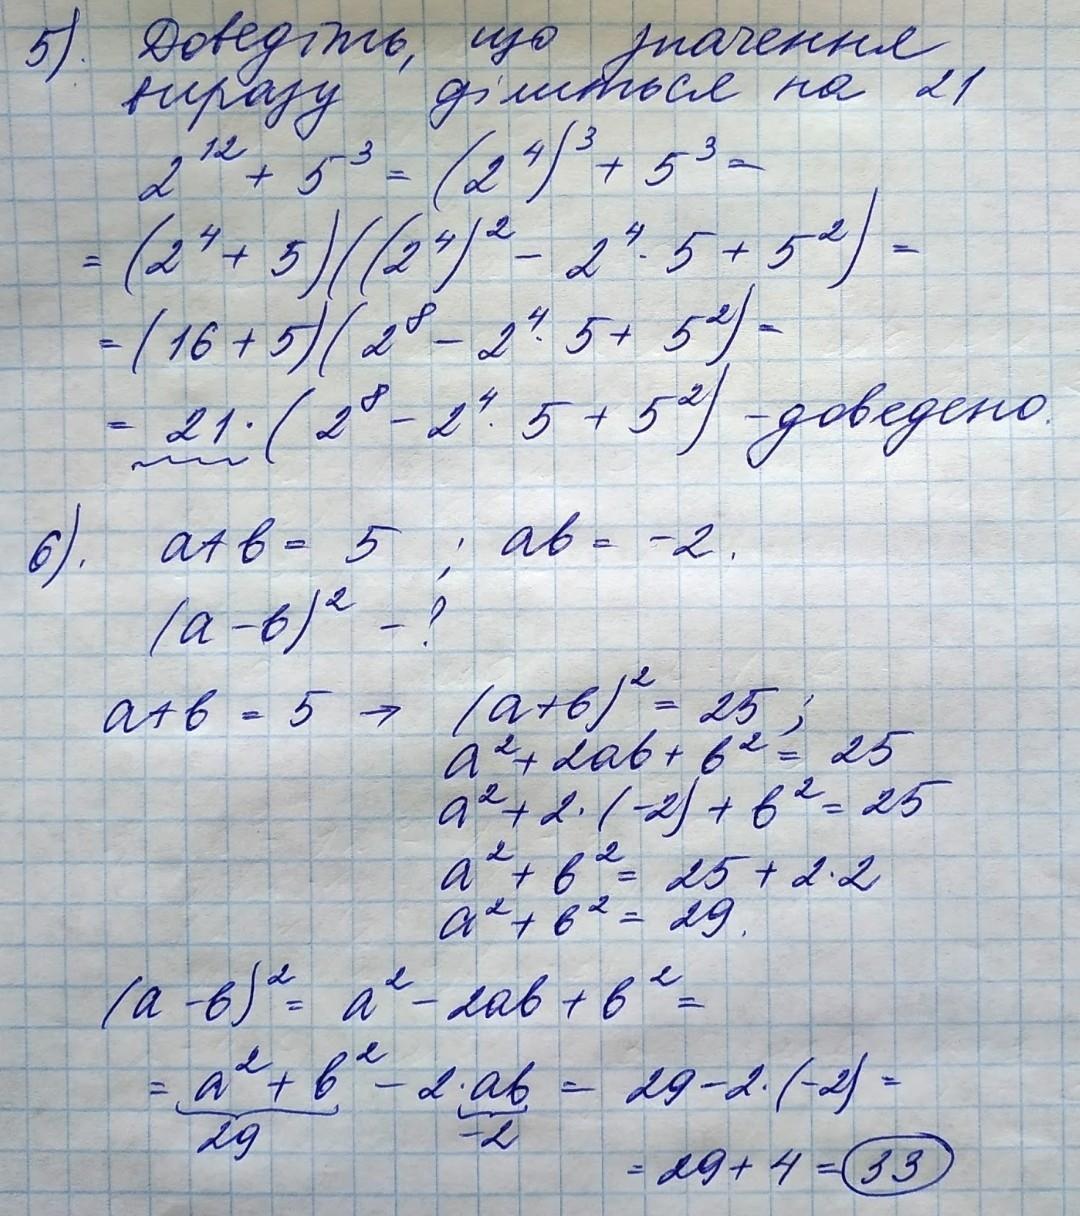 5). Доведіть, що значення
виразу ділиться на 21
2¹² + 5³ = (2⁴)³ + 5³ =
= (2⁴ + 5)((2⁴)² - 2⁴ · 5 + 5²) =
= (16 + 5)(2⁸ - 2⁴ · 5 + 5²) =
= 21 · (2⁸ - 2⁴ · 5 + 5²) - доведено.
6). a+b = 5 ; ab = -2.
(a - b)² - ?
a+b = 5 → (a+b)² = 25 ;
a² + 2ab + b² = 25
a² + 2 · (-2) + b² = 25
a² + b² = 25 + 2 · 2
a² + b² = 29.
(a - b)² = a² - 2ab + b² =
= a² + b² - 2 · ab = 29 - 2 · (-2) =
29 -2
= 29 + 4 = 33